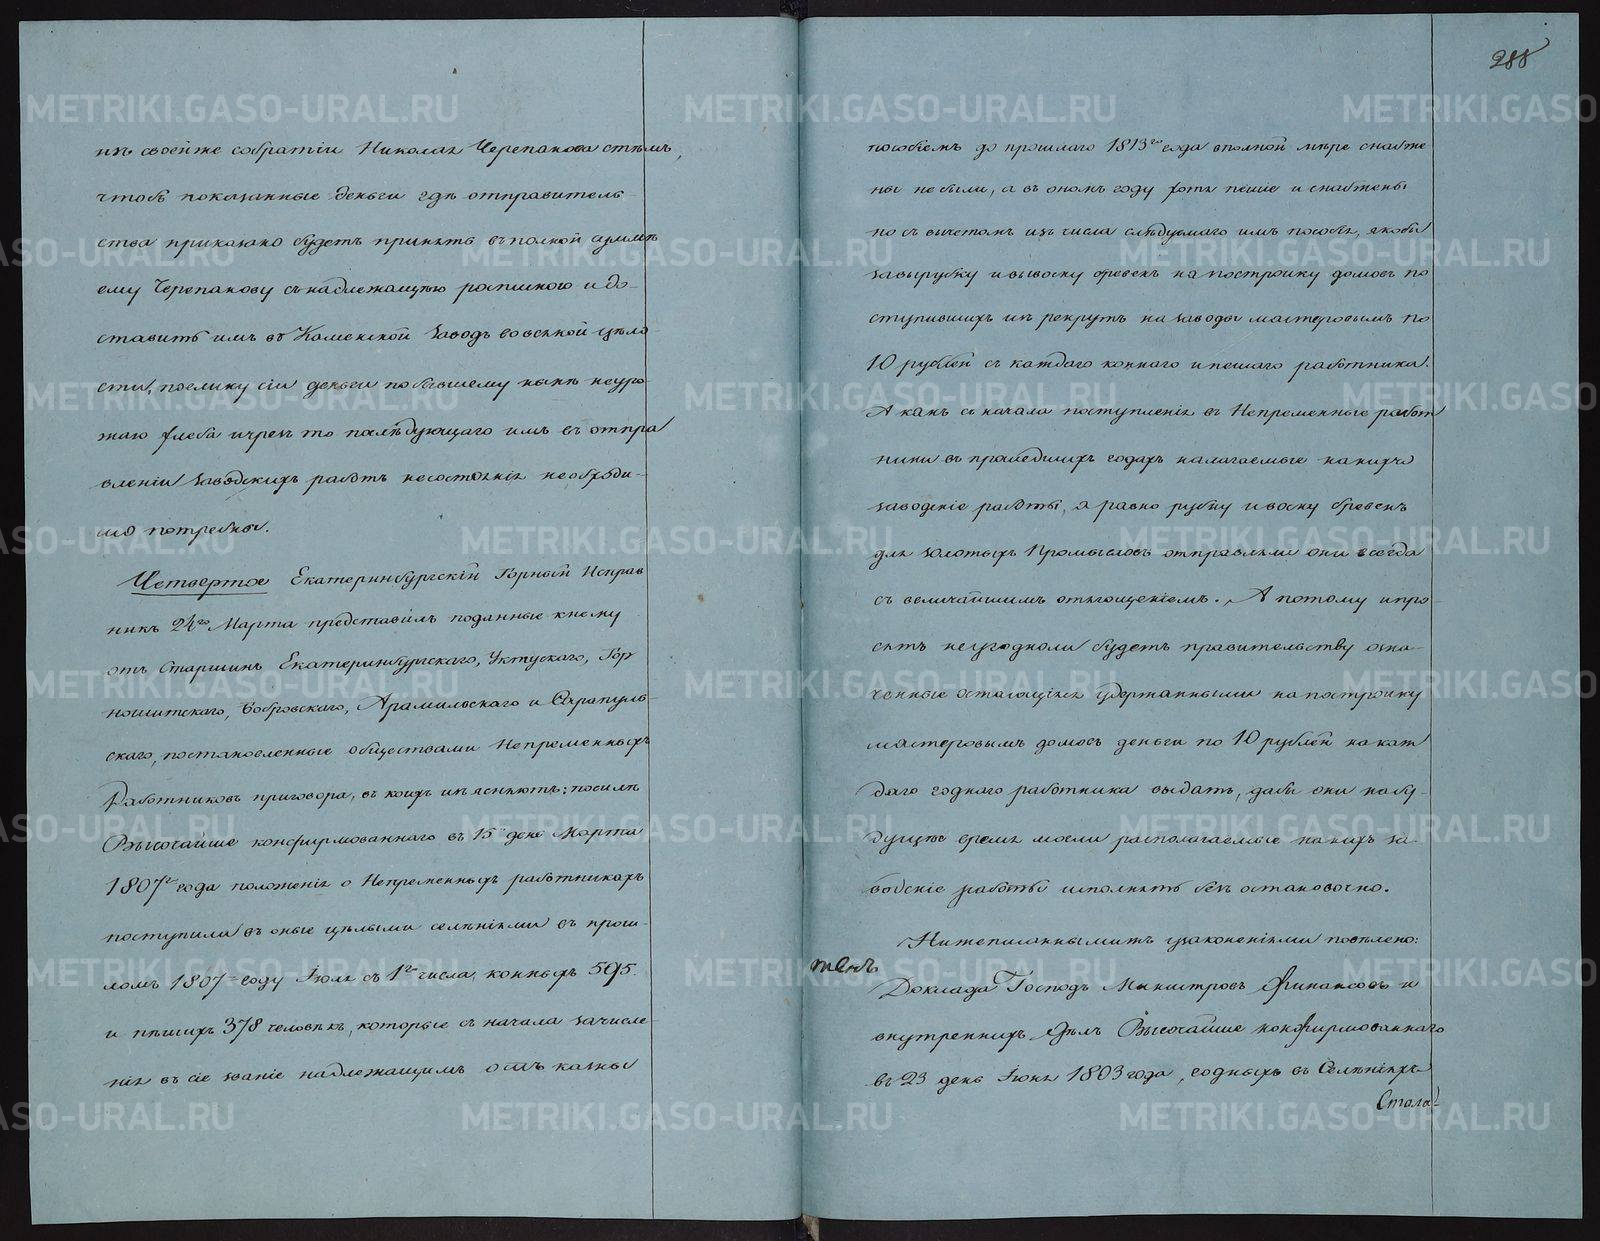 изъ своей же собратіи Николая Черепанова стѣмъ,
чтобъ показанные деньги гдѣ отправитель-
ства приказано будетъ принять въ полной суммѣ
ему Черепанову съ надлежащею роспискою и до-
ставить имъ въ Каменской заводъ во всякой цѣло
сти, поелику сіи деньги по бывшему нынѣ неуро-
жаю хлеба и чрез то последующаго имъ въ отпра
вленіи заводскихъ работъ несостоянія необходи-
мо потребны.
Четвертое Екатеринбургскій Горный Исправ
никъ 24го Марта представилъ поданные кнему
отъ Старшинъ Екатеринбургскаго, Уктускаго, Гор
нощитскаго, Бобровскаго, Арамильскаго и Сарапуль
скаго, постановленные обществами Непременныхъ
Работниковъ приговора, въ коихъ изъясняютъ: посилѣ
Высочайше конфирмованнаго въ 15 день Марта
1807го года положенія о Непременныхъ работникахъ
поступили въ оные цѣлыми селѣніями въ прош-
ломъ 1807м году Іюля съ 1го числа, конныхъ 595.
и пѣшихъ 378 человѣкъ, которые съ начала зачисле-
нія въ сіе званіе надлежащимъ отъ казны
288
пособіемъ до прошлаго 1813го года вполной мѣре снабже
ны не были, а въ ономъ году хотя пешіе и снабжены
но съ вычетомъ изъ числа слѣдуемаго имъ пособія, якобы
за вырубку и вывоску бревенъ на постройку домовъ по
ступившихъ изъ рекрутъ на заводы мастеровымъ по
10 рублей съ каждаго коннаго и пешаго работника.
А какъ сначала поступленія въ Непременные работ
ники въ прошедшихъ годахъ налагаемые на нихъ
заводскіе работы, а равно рубку и воску бревенъ
для золотыхъ Промысловъ отправляли они всегда
съ величайшимъ отягощеніемъ. А потому и про-
сятъ неугодноли будетъ правительству озна-
ченные остающіяся удержанными на постройку
мастеровымъ домовъ деньги по 10 рублей на каж
даго годнаго работника выдать, дабы они на бу-
дущее время могли располагаемые на нихъ за-
водскіе работы исполнять безъ остановочно.
Нижеписанными узаконеніями повѣлено:
Доклада Господъ Министровъ Финансовъ и
внутреннихъ дѣлъ Высочайше конфирмованнаго
въ 23 день Іюня 1803 года, годныхъ въ Селѣніяхъ